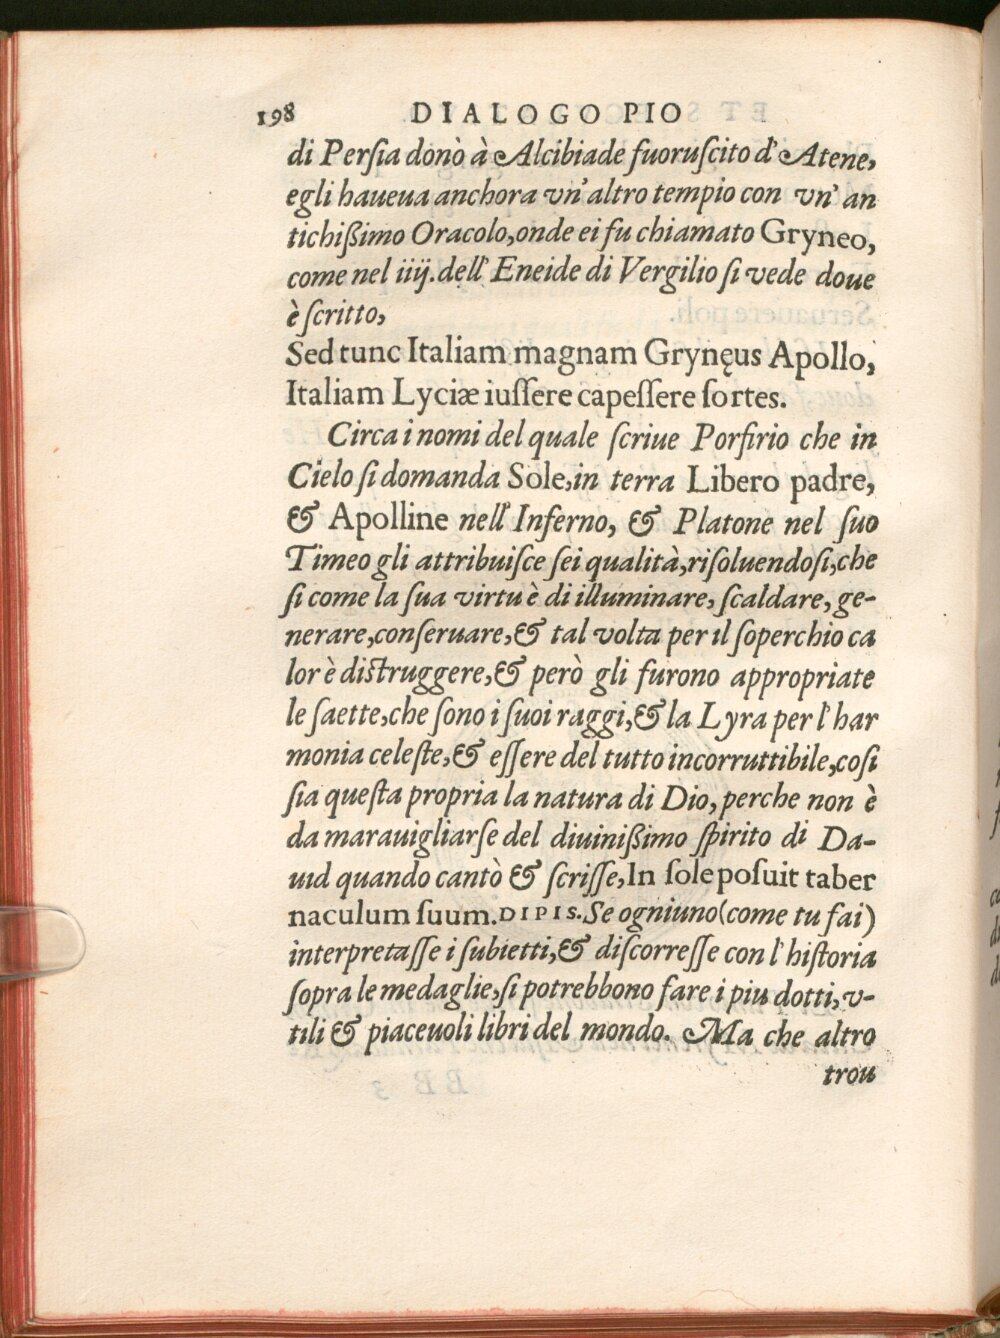 198 DIALOGO PIO
di Perſia donò à Alcibiade fuoruſcito d'Atene,
egli haueua anchora vn'altro tempio con vn' an
tichißimo Oracolo,onde ei fu chiamato Gryneo,
come nel iiij.dell' Eneide di Vergilio ſi vede doue
è ſcritto,
Sed tunc Italiam magnam Grynęus Apollo,
Italiam Lyciæ iuſſere capeſſere ſortes.
Circa i nomi del quale ſcriue Porfirio che in
Cielo ſi domanda Sole,in terra Libero padre,
& Apolline nell'Inferno, & Platone nel ſuo
Timeo gli attribuiſce ſei qualità,riſoluendoſi,che
ſi come la ſua virtu è di illuminare, ſcaldare, ge-
nerare,conſeruare,& tal volta per il ſoperchio ca
lor è diſtruggere,& però gli furono appropriate
le ſaette,che ſono i ſuoi raggi,& la Lyra per l'har
monia celeſte,& eſſere del tutto incorruttibile,coſi
ſia queſta propria la natura di Dio, perche non è
da marauigliarſe del diuinißimo ſpirito di Da-
uid quando cantò & ſcriſſe,In ſole poſuit taber
naculum ſuum.DIPIS.Se ogniuno(come tu fai)
interpretaſſe i ſubietti,& diſcorreſſe con l'hiſtoria
ſopra le medaglie,ſi potrebbono fare i piu dotti,v-
tili & piaceuoli libri del mondo. Ma che altro
trou